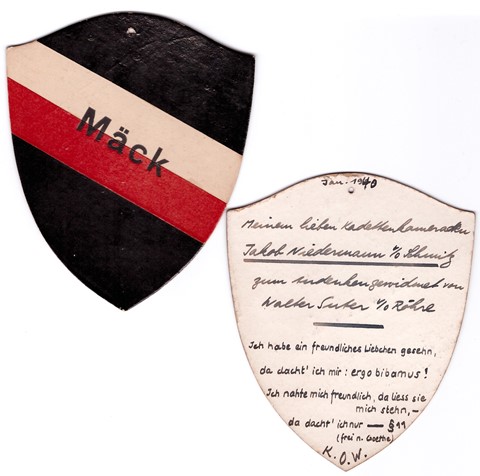 Mäck
Jan. 1940
Meinem lieben Kadettenkameraden
Jakob Niedermann v/o Schmitz
zum Andenken gewidmet von
Walter Suter v/o Röhre
Ich habe ein freundliches Liebchen gesehn,
da dacht' ich mir: ergo bibamus!
Ich nahte mich freundlich, da liess sie
mich stehn, –
da dacht' ich nur — § 11
(frei n. Goethe)
K.O.W.